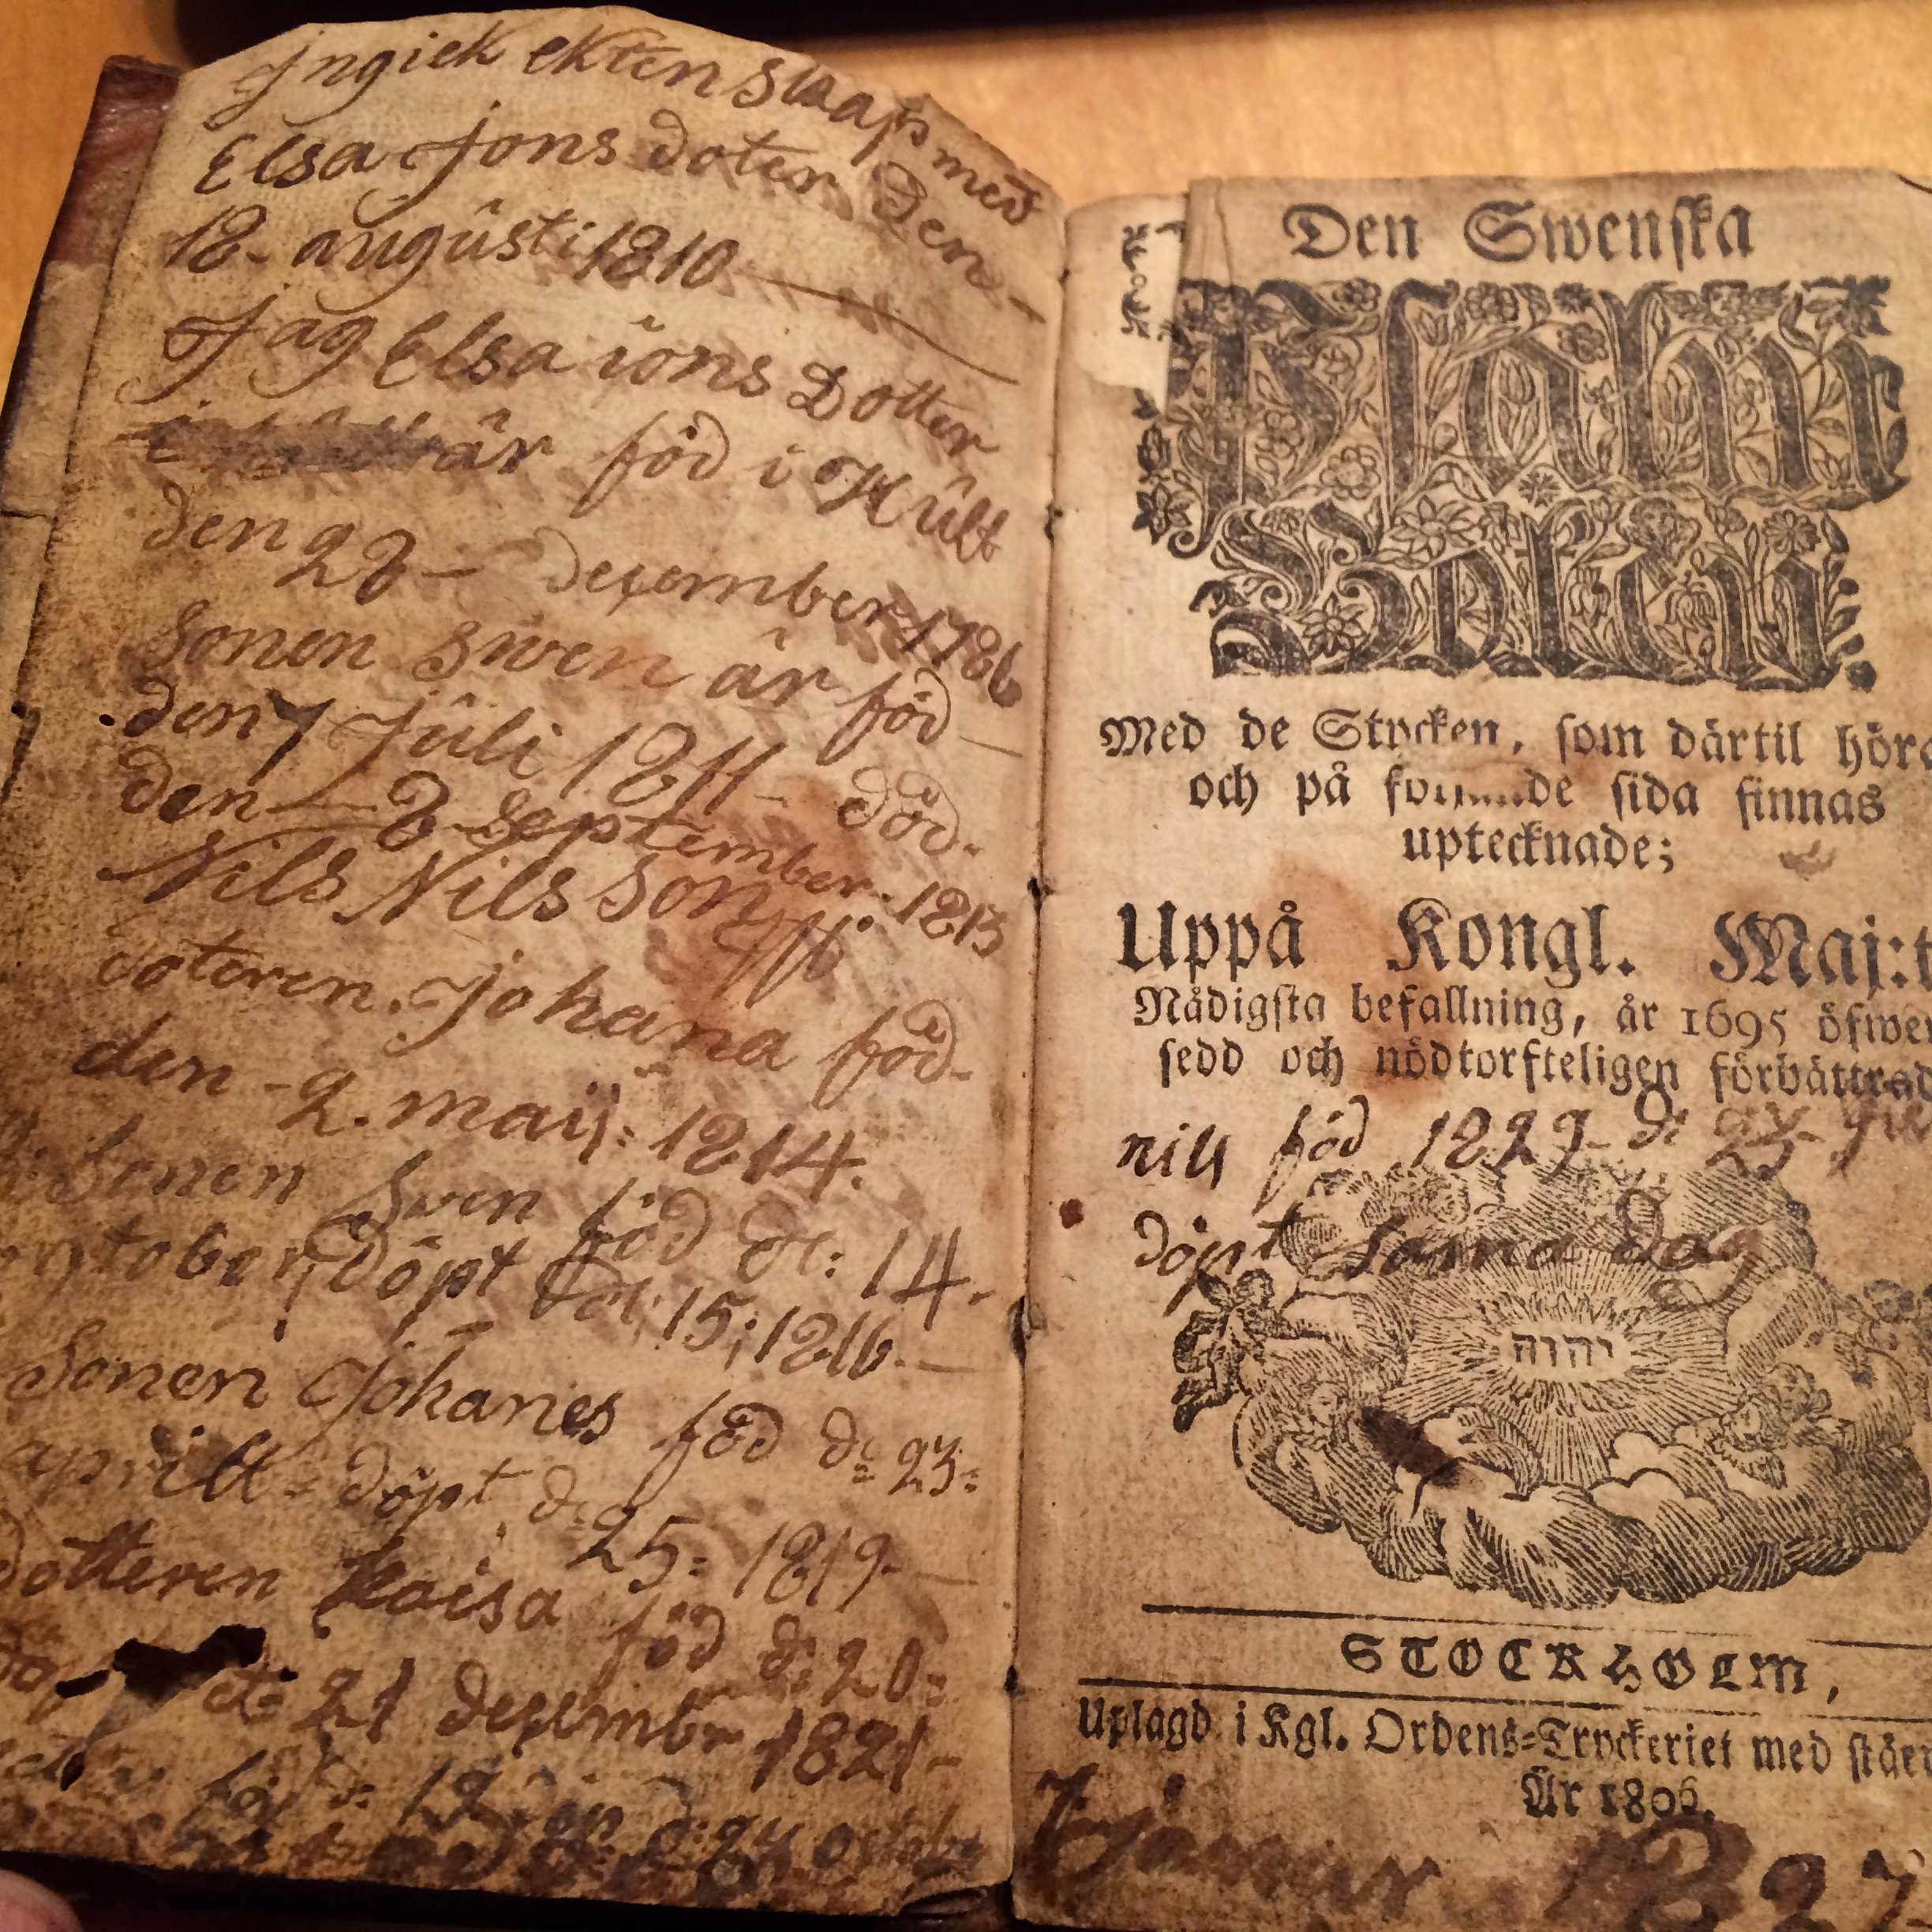 Jngick ektenskaps med
Elsa Jons doter Den
18. augûsti 1810
Jag Elsa ions Dotter
är född i Hûlt
den 28 – desember 1786
Sonen Swen är född
den 7 Jûli 1811 – död.
den 28 September 1813
Nils Nils Son
doteren. Johana född.
den – 2. maij: 1814.
Sonen Swen född d: 14.
döpt d: 15; 1816.
Sonen Johanes född d: 23:
aprill: döpt d: 25: 1819.
dotteren kaisa född d: 20:
21 desember 1821
Den Swenska
Psalm
Boken
Med de Stycken, som därtil höra
och på sida finnas
uptecknade;
Uppå Kongl. Maj:t
Nådigsta befallning, år 1695 öfwer
sedd och nödtorfteligen förbättrad
nils född 1829 d:
döpt sama dag
יהוה
STOCKHOLM,
Uplagd i Kgl. Ordens-Tryckeriet med
År 1806.